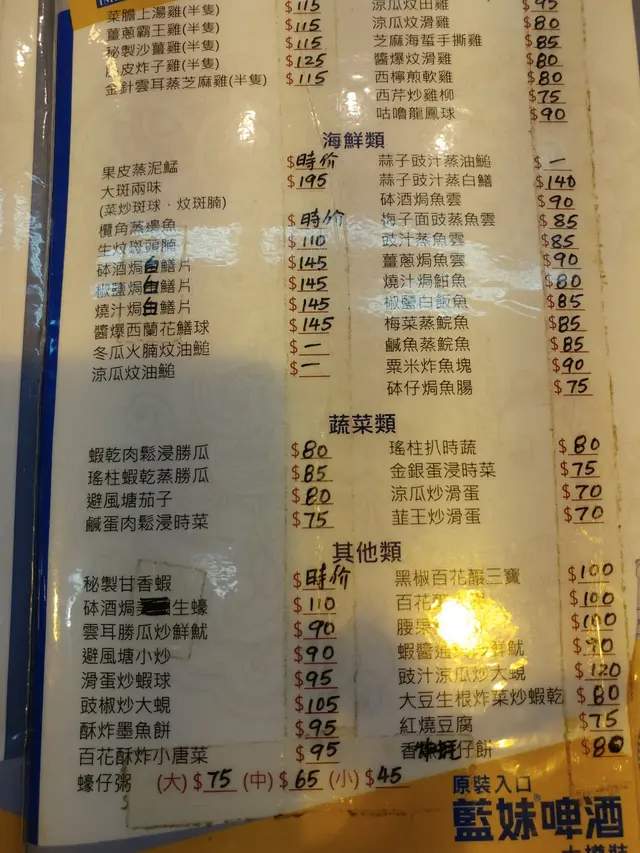 菜膽上湯雞(半隻) $115
薑蔥霸王雞(半隻) $115
秘製沙薑雞(半隻) $115
皮炸子雞(半隻) $125
金針雲耳蒸芝麻雞(半隻) $115
涼瓜炆田雞 $95
涼瓜炆滑雞 $80
芝麻海蜇手撕雞 $85
醬爆炆滑雞 $80
西檸煎軟雞 $80
西芹炒雞柳 $75
咕嚕龍鳳球 $90
海鮮類
果皮蒸泥鯭 $時价
大斑兩味 $195
(菜炒斑球、炆斑腩)
欖角蒸邊魚 $時价
生炆斑頭腩 $110
砵酒焗白鱔片 $145
椒鹽焗白鱔片 $145
燒汁焗白鱔片 $145
醬爆西蘭花鱔球 $145
冬瓜火腩炆油鎚 $一
涼瓜炆油鎚 $一
蒜子豉汁蒸油鎚 $一
蒜子豉汁蒸白鱔 $140
砵酒焗魚雲 $90
梅子面豉蒸魚雲 $85
豉汁蒸魚雲 $85
薑蔥焗魚雲 $90
燒汁焗魽魚 $80
椒鹽白飯魚 $85
梅菜蒸鯇魚 $85
鹹魚蒸鯇魚 $85
粟米炸魚塊 $90
砵仔焗魚腸 $75
蔬菜類
蝦乾肉鬆浸勝瓜 $80
瑤柱蝦乾蒸勝瓜 $85
避風塘茄子 $80
鹹蛋肉鬆浸時菜 $75
瑤柱扒時蔬 $80
金銀蛋浸時菜 $75
涼瓜炒滑蛋 $70
韮王炒滑蛋 $70
其他類
秘製甘香蝦 $時价
砵酒焗生蠔 $110
雲耳勝瓜炒鮮魷 $90
避風塘小炒 $90
滑蛋炒蝦球 $95
豉椒炒大蜆 $105
酥炸墨魚餅 $95
百花酥炸小唐菜 $95
蠔仔粥 (大) $75 (中) $65 (小) $45
黑椒百花釀三寶 $100
百花 $100
腰果 $100
蝦醬 鮮魷 $90
豉汁涼瓜炒大蜆 $120
大豆生根炸菜炒蝦乾 $80
紅燒豆腐 $75
香 仔餅 $80
原裝入口
藍妹啤酒
大樽裝